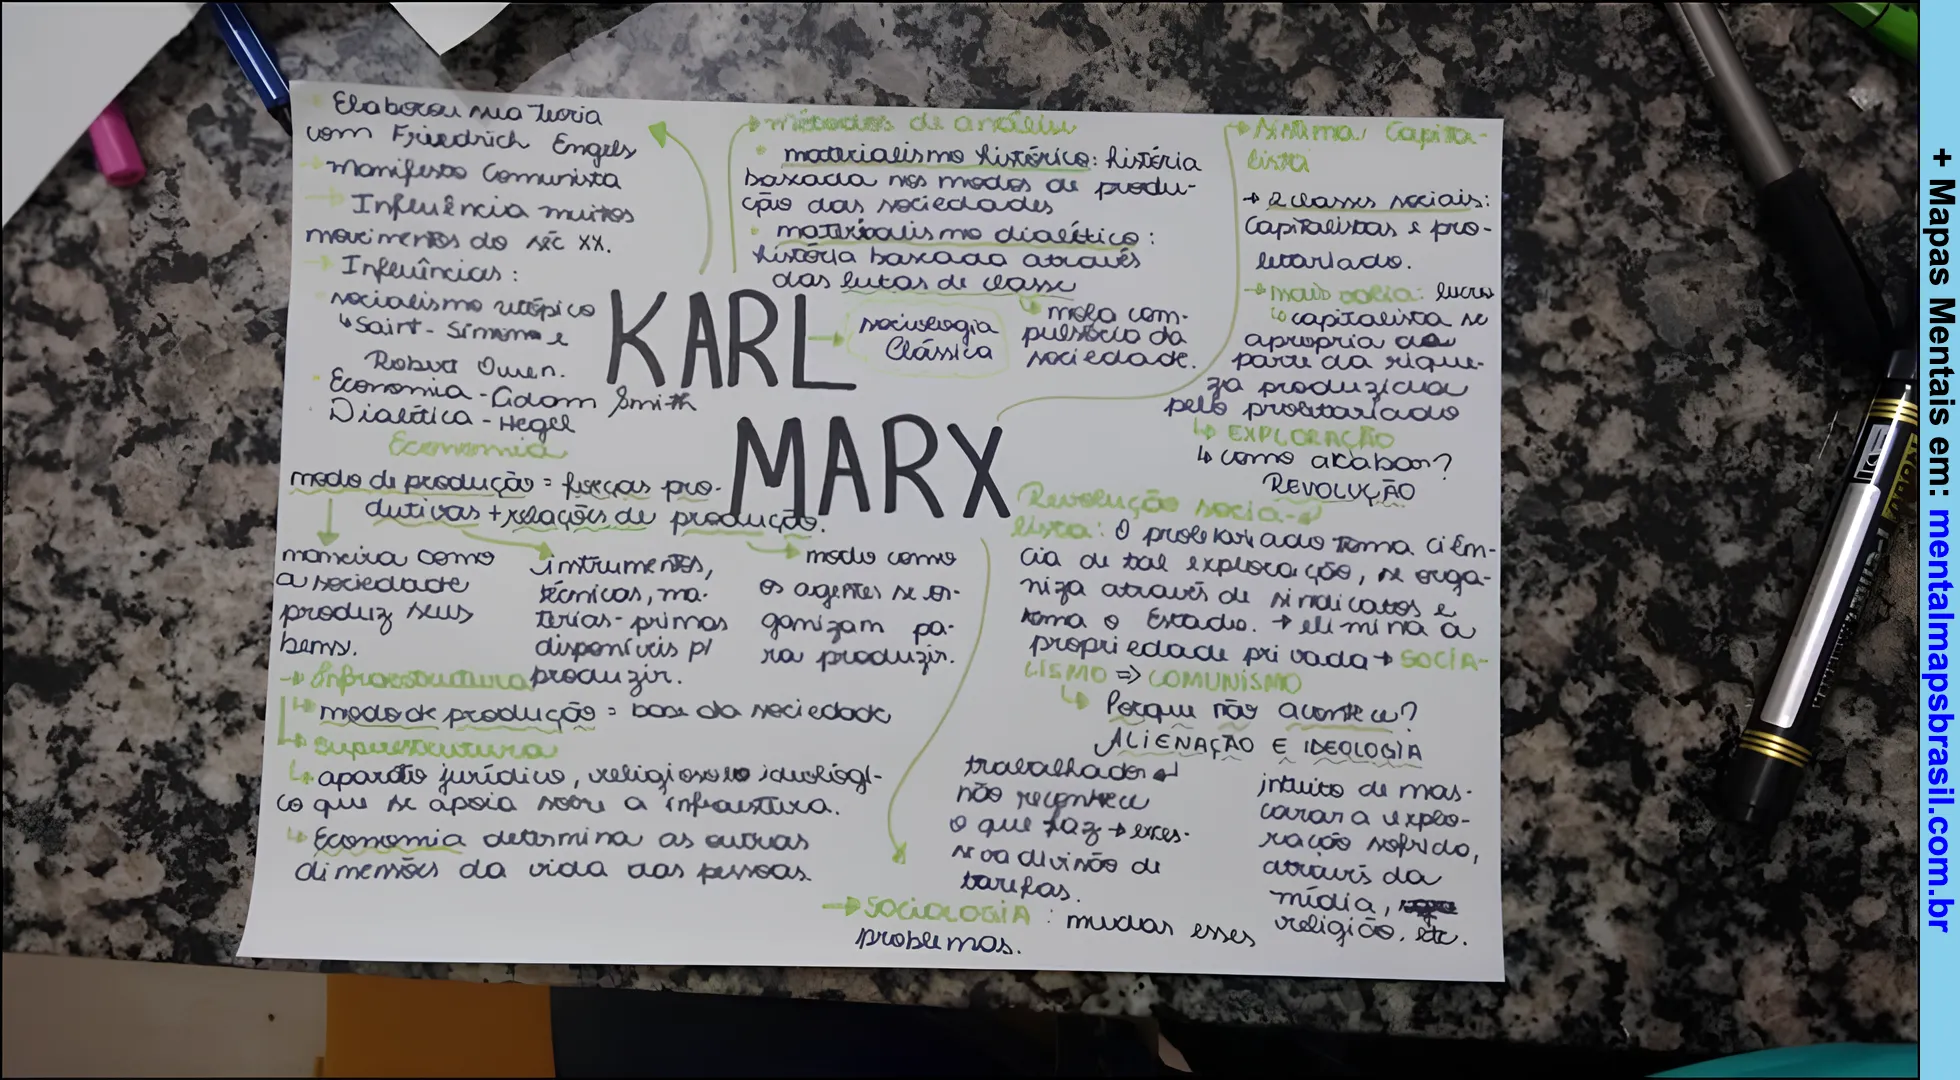 Elaborou sua Teoria
com Friedrich Engels
Manifesto Comunista
Influência muitos
movimentos do séc XX.
Influências:
socialismo utópico
Saint-Simon e
Robert Owen.
Economia - Adam Smith
Dialética - Hegel
métodos de análise
materialismo histórico: história
baseada nos modos de produ-
ção das sociedades
materialismo dialético:
história baseada através
das lutas de classe
mola com-
pulsória da
sociedade.
KARL
MARX
sociologia
Clássica
Sistema Capita-
lista
2 classes sociais:
Capitalistas e pro-
letariado.
mais valia: lucro
capitalista se
apropria da
parte da rique-
za produzida
pelo proletariado
EXPLORAÇÃO
como acabar?
REVOLUÇÃO
Economia
modo de produção = forças pro-
dutivas + relações de produção.
maneira como
a sociedade
produz seus
bens.
instrumentos,
técnicas, ma-
terias-primas
disponíveis p/
produzir.
modo como
os agentes se or-
ganizam pa-
ra produzir.
Infraestrutura
modo de produção = base da sociedade
superestrutura
aparato jurídico, religioso e ideológi-
co que se apoia sobre a infraestrutura.
Economia determina as outras
dimensões da vida das pessoas.
Revolução socia-
lista: O proletariado toma ciên-
cia de tal exploração, se orga-
niza através de sindicatos e
toma o Estado. → elimina a
propriedade privada → SOCIA-
LISMO => COMUNISMO
Porque não acontece?
ALIENAÇÃO E IDEOLOGIA
trabalhador
não reconhece
o que faz → exces-
siva divisão de
tarefas.
intuito de mas-
carar a explo-
ração sofrida,
através da
mídia,
religião, etc.
SOCIOLOGIA: mudar esses
problemas.
+ Mapas Mentais em: mentalmapsbrasil.com.br